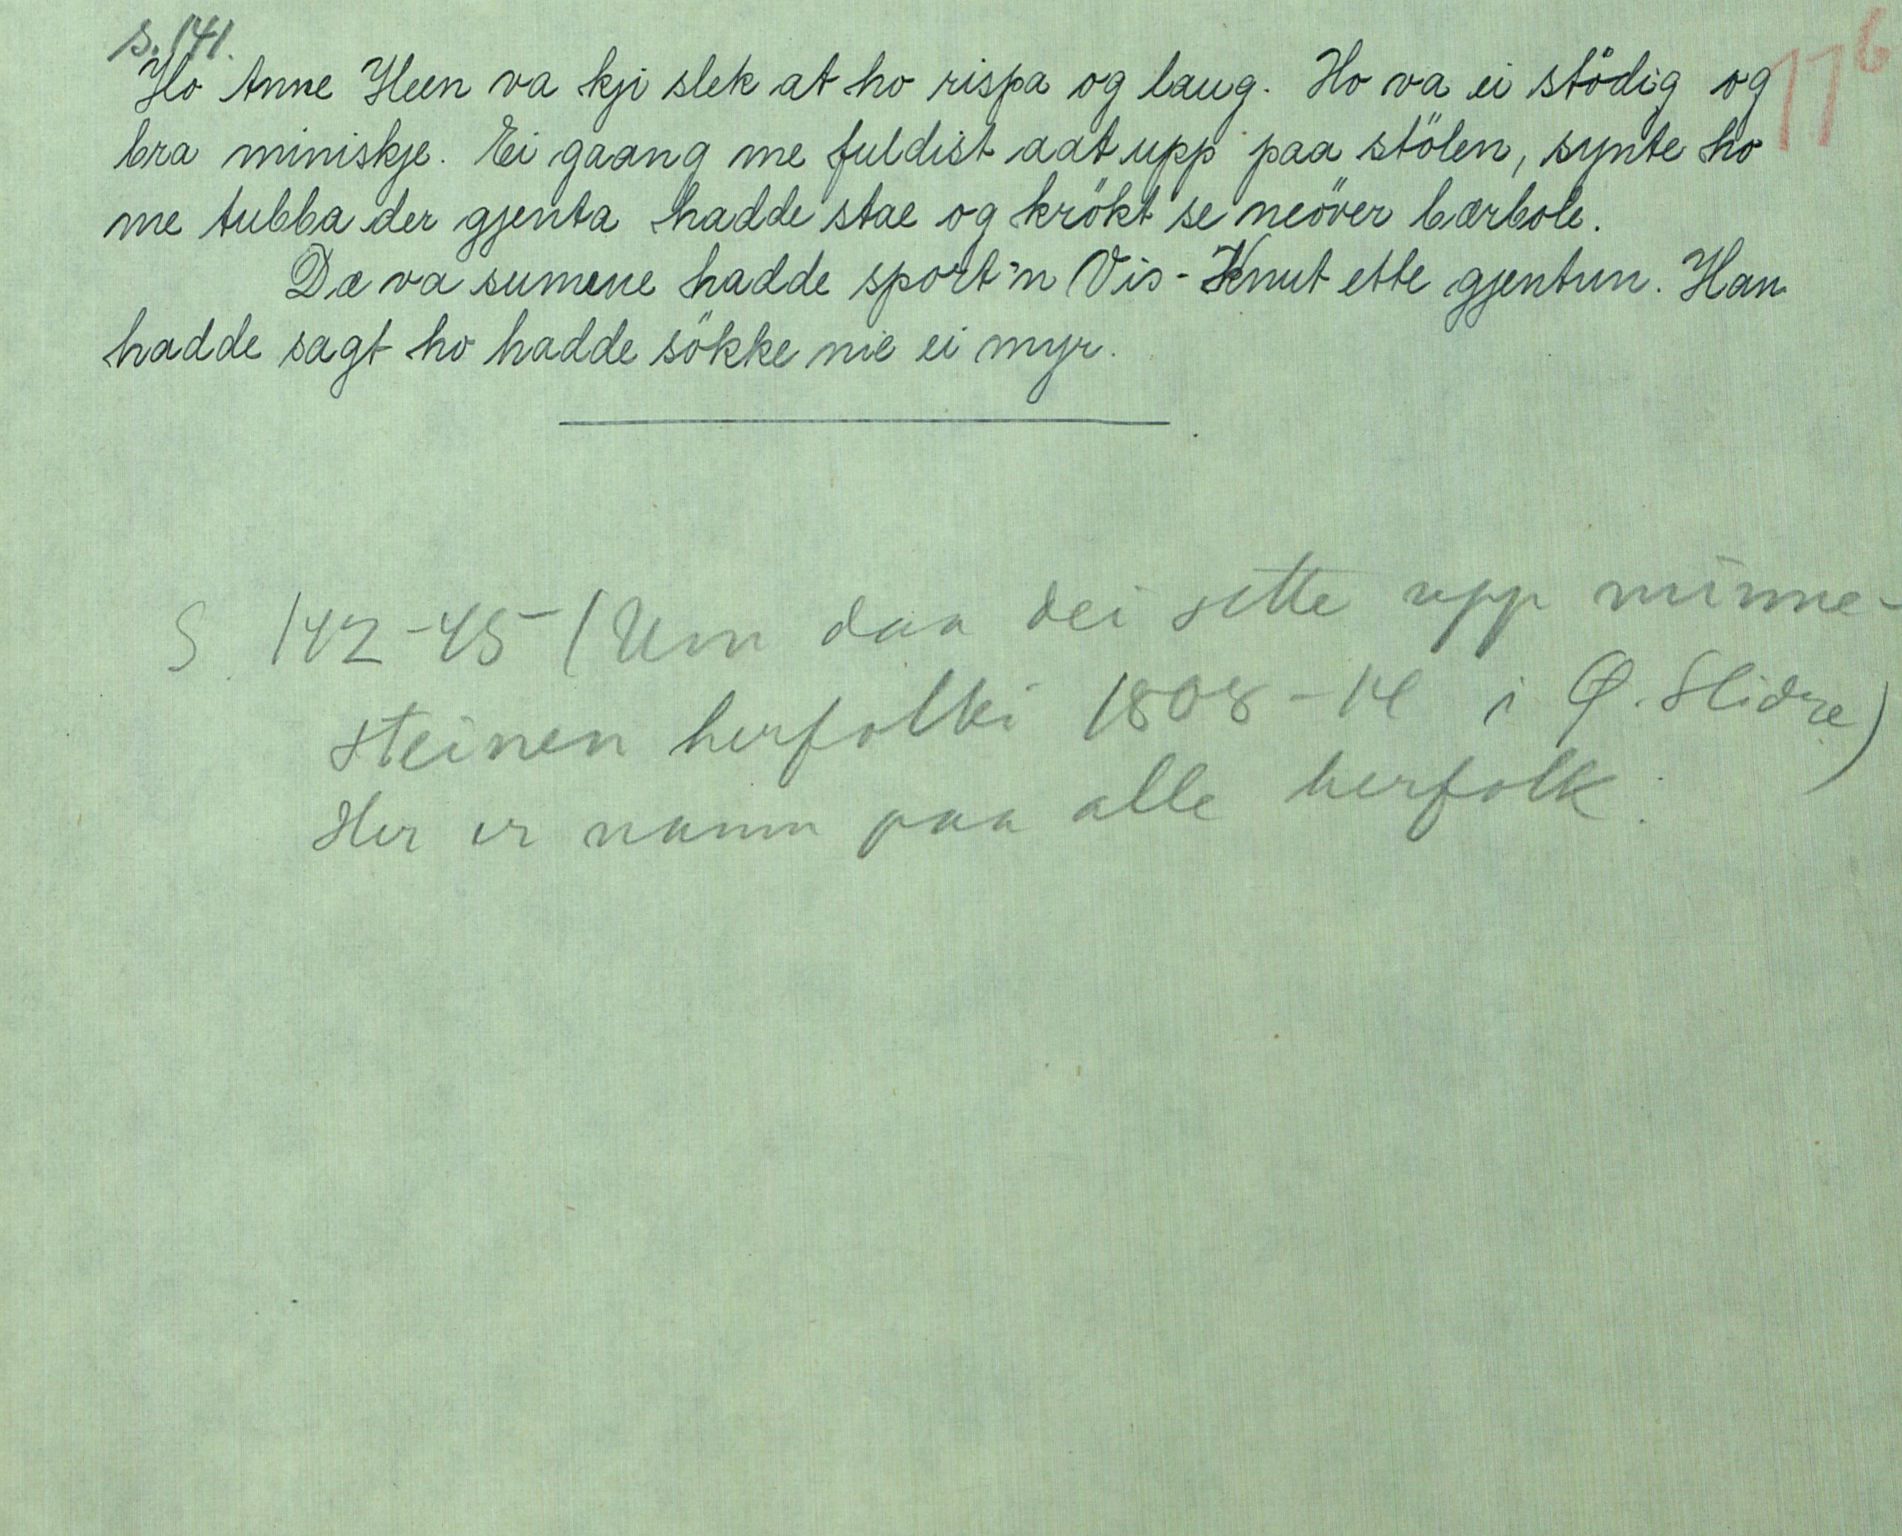 s. 141.
116
Ho Anne Heen va kji slek at ho rispa og laug. Ho va ei stödig og
bra miniskje. Ei gaang me fuldist aat upp paa stölen, synte ho
me tubba der gjenta hadde stae og krökt se neöver bærbole.
Dæ va sumene hadde sport'n Vis-Knut ette gjentun. Han
hadde sagt ho hadde sökke nie ei myr.
S. 142-45 (Um daa dei sette upp minne-
steinen herfolki 1808-14 i Ø. Slidre)
Her er namn paa alle herfolk.